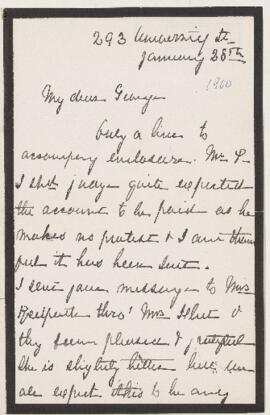 293 University St.
January 28th
1900
My dear George
Only a line to
accompany enclosure. Mr. P.
I shd. judge quite expected
the account to be paid as he
makes no protest & I am thank
ful it has been sent.
I sent your message to Mrs
thro' Mrs &
they seem pleased &
She is slightly better but we
all expect this to be only